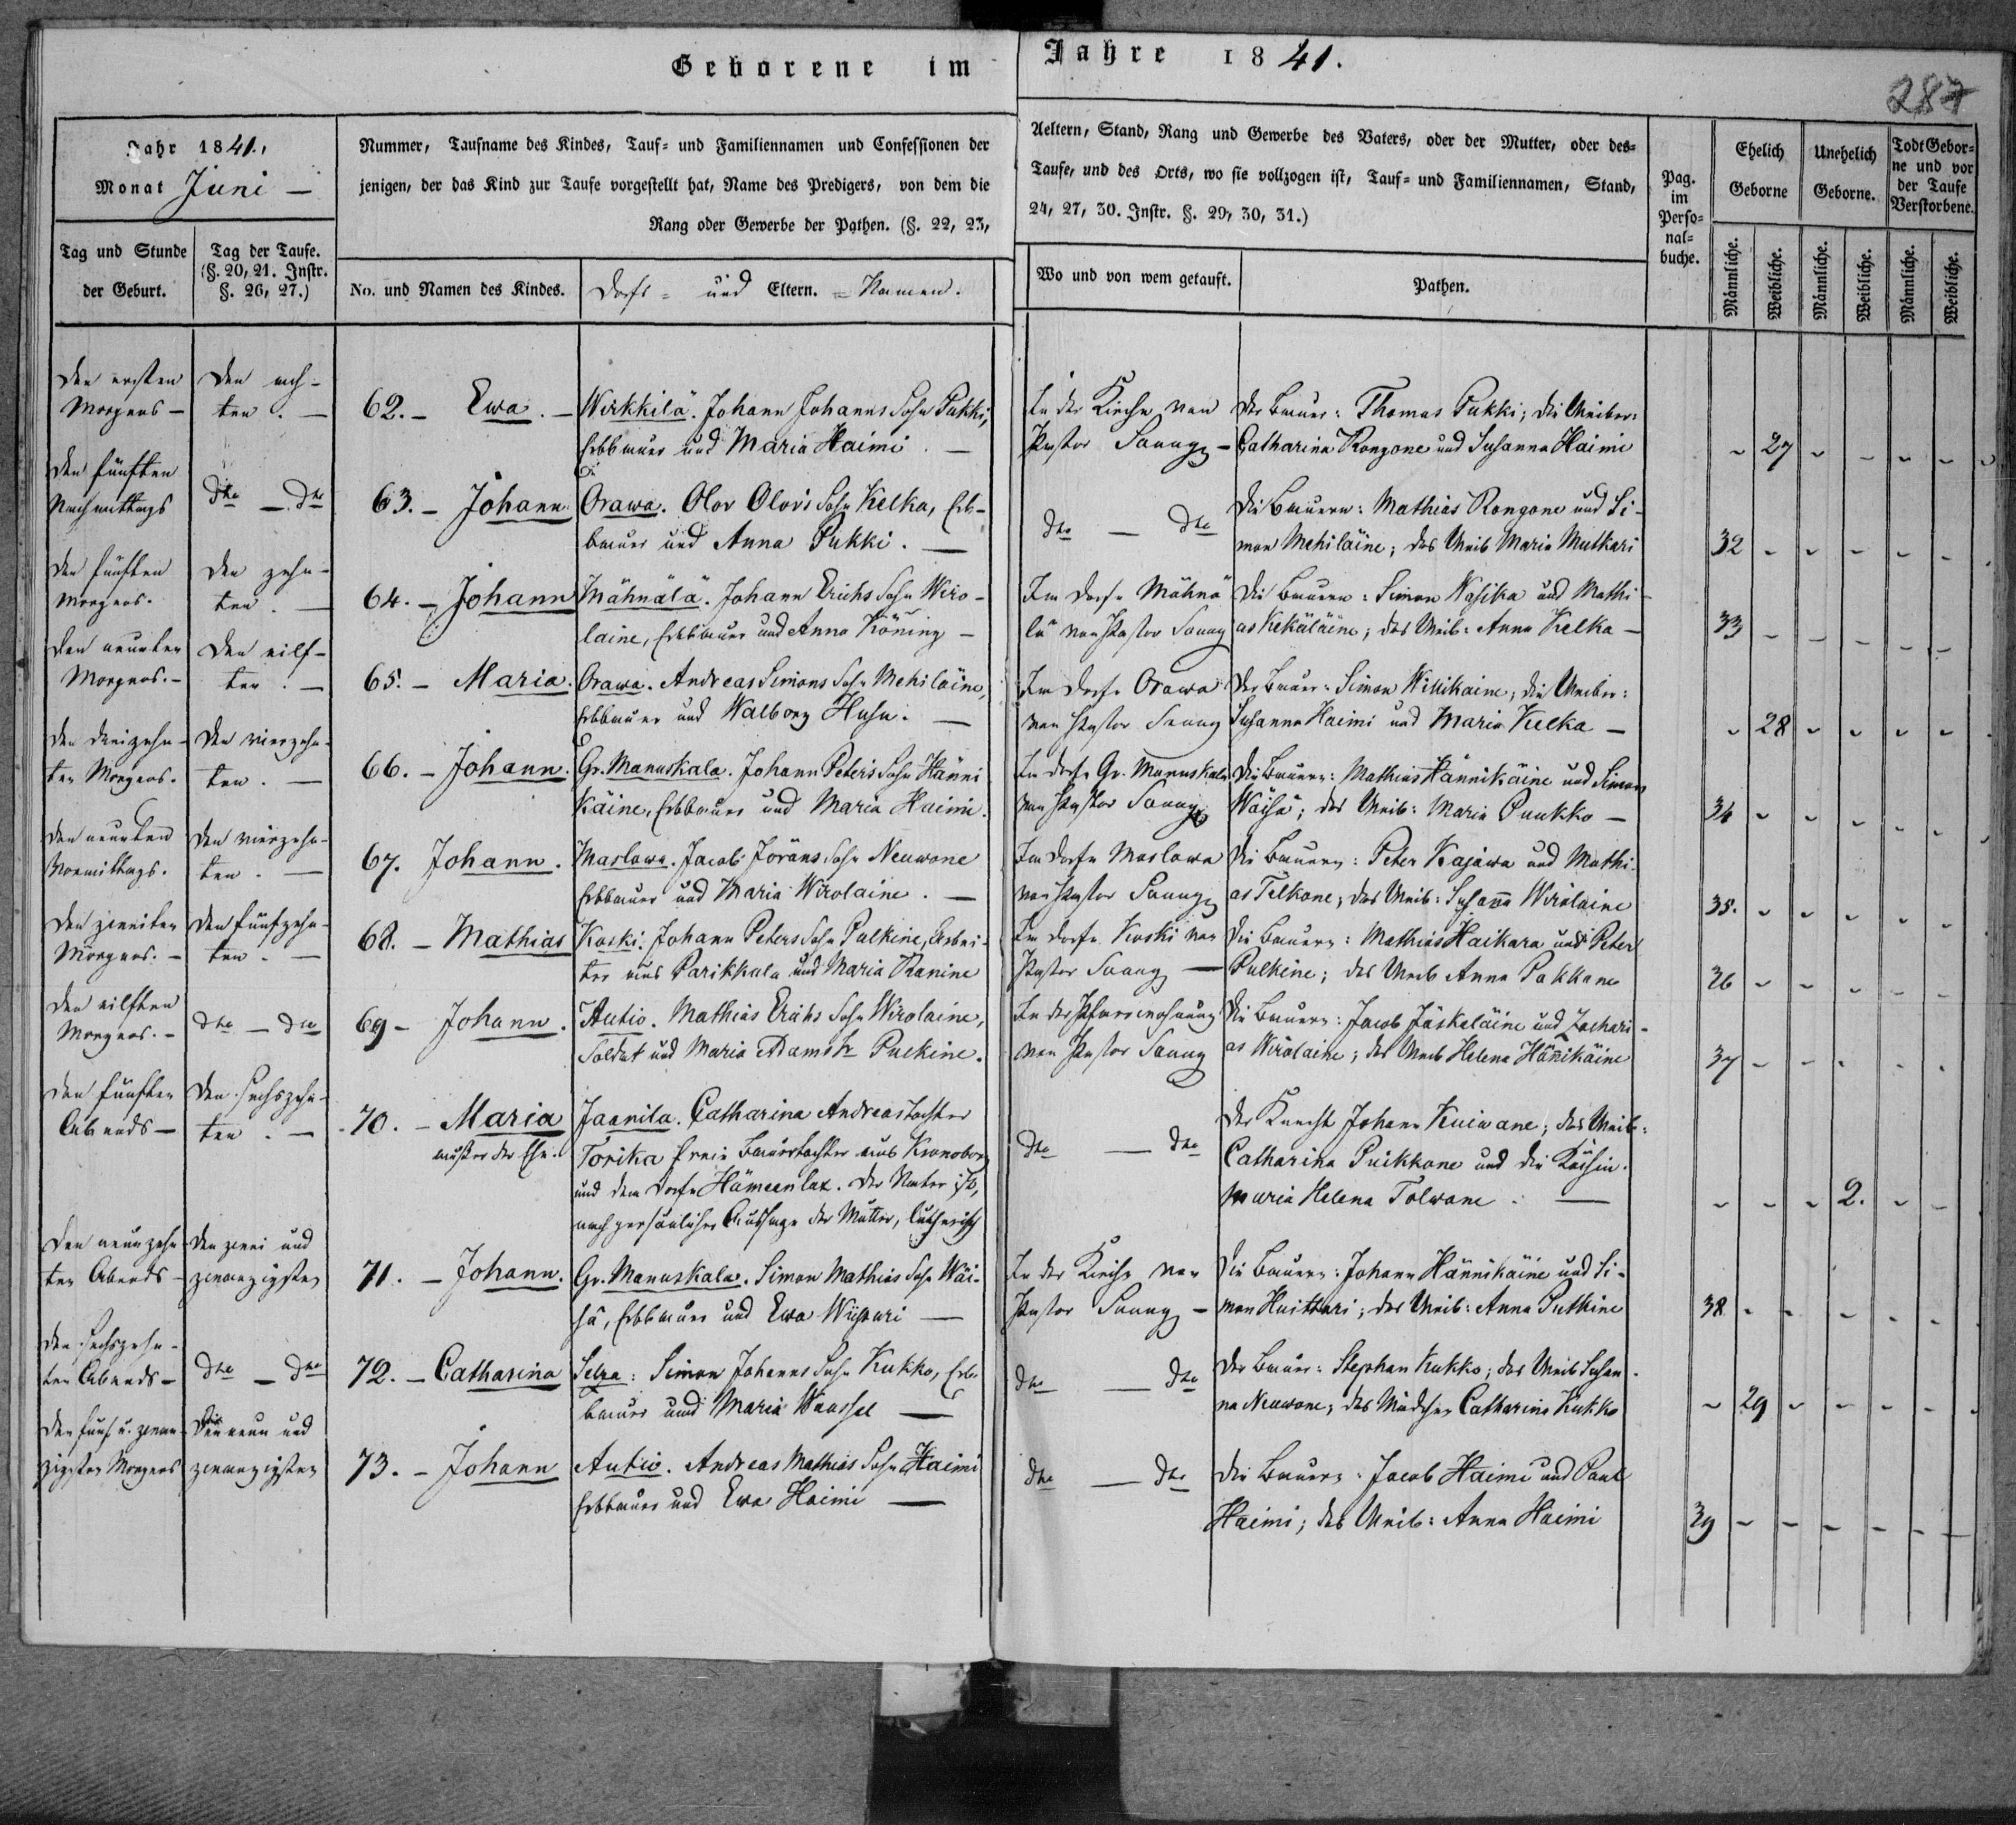 Geborene im Jahre 1841.
287
Jahr 1841.,
Monat Juni —
Tag und Stunde
der Geburt.
Tag der Taufe.
(§. 20, 21. Instr.
§. 26, 27.)
Nummer, Taufname des Kindes, Tauf- und Familiennamen und Confessionen der
jenigen, der das Kind zur Taufe vorgestellt hat, Name des Predigers, von dem die
Rang oder Gewerbe der Pathen. (§. 22, 23,
No. und Namen des Kindes.
Dorfs - und Eltern. - Namen.
Aeltern, Stand, Rang und Gewerbe des Vaters, oder der Mutter, oder des-
Taufe, und des Orts, wo sie vollzogen ist, Tauf- und Familiennamen, Stand,
24, 27, 30. Instr. §. 29, 30, 31.)
Wo und von wem getauft.
Pathen.
Pag.
im
Perso-
nal-
buche.
Ehelich
Geborne
Unehelich
Geborne.
Todt Gebor-
ne und vor
der Taufe
Verstorbene.
Männliche.
Weibliche.
Männliche.
Weibliche.
Männliche.
Weibliche.
Den ersten
Morgens —
Den ach-
ten. —
62. — Ewa. —
Wirkkilä. Johann Johanns Sohn Pukki,
Erbbauer und Maria Haimi. —
In der Kirche von
Pastor Sanng —
Der Bauer: Thomas Pukki; die Weiber:
Catharina Rongone und Susanna Haimi
27
Den fünften
Nachmittags
dto — dto
63. — Johann
Orawa. Olov Olovs Sohn Kelka, Erb-
bauer und Anna Pukki. —
dto — dto
Die Bauern: Mathias Rongone und Si-
mon Mehiläine; das Weib Maria Mutkari
32
Den fünften
Morgens.
Den zehn-
ten. —
64. — Johann
Mähnälä. Johann Erichs Sohn Wiro-
laine, Erbbauer und Anna Köning —
Im Dorfe Mähnä
lä von Pastor Sanng
Die Bauern: Simon Wasika und Mathi-
as Kekäläine; das Weib: Anna Kelka —
33
Den neunten
Morgens. —
Den eilf-
ten. —
65. — Maria.
Orawa. Andreas Simons Sohn Mehiläine,
Erbbauer und Walborg Husu. —
Im Dorfe Orawa
von Pastor Sanng
Der Bauer: Simon Willikaine; die Weiber:
Susanna Haimi und Maria Kelka —
28
Den dreizehn-
ten Morgens.
Den vierzehn-
ten. —
66. — Johann.
Gr. Manuskala. Johann Peters Sohn Hänni
käine, Erbbauer und Maria Haimi.
Im Dorfe Gr. Manuskala
von Pastor Sanng
Die Bauern: Mathias Hännikäine und Simon
Wäisä; das Weib: Maria Puukko —
34
Den neunten
Vormittags.
Den vierzehn-
ten. —
67. Johann.
Maslowa. Jacob Jörans Sohn Neuwone
Erbbauer und Maria Wirolaine. —
Im Dorfe Maslowa
von Pastor Sanng
Die Bauern: Peter Kajawa und Mathi-
as Telkone; das Weib: Susanna Wirolaine
35.
Den zweiten
Morgens. —
Den fünfzehn-
ten. —
68. — Mathias
Koski: Johann Peters Sohn Pulkine, Arbei-
ter aus Parikkala und Maria Ranine
Im Dorfe Koski von
Pastor Sanng —
Die Bauern: Mathias Haikara und Peter
Pulkine; das Weib Anna Pakkane
36
Den eilften
Morgens. —
dto — dto
69 — Johann.
Autio. Mathias Erichs Sohn Wirolaine,
Soldat und Maria Adams Pulkine.
In der Pfarrwohnung
von Pastor Sanng
Die Bauern: Jacob Jäskeläine und Zachari-
as Wirolaine; das Weib Helena Hänikäine
37
Den fünften
Abends —
Den sechszehn-
ten. —
70. — Maria
außer der Ehe.
Jaanila. Catharina Andreastochter
Torikka freie Bauertochter aus Kronoborg
und dem Dorfe Hämeenlax. Der Vater ist,
nach persönlicher Aussage der Mutter, lutherisch
dto — dto
Der Knecht Johann Kuiwane; das Weib:
Catharina Puikkone und die
Maria Helena Tolwane. —
2.
Den neunzehn
ten Abends —
Den zwei und
zwanzigsten
71. — Johann.
Gr. Manuskala. Simon Mathias Sohn Wäi-
sä, Erbbauer und Ewa Wiipuri —
In der Kirche von
Pastor Sanng —
Die Bauern: Johann Hännikäine und Si-
mon Huittari; das Weib: Anna Putkine
38
Den sechszehn-
ten Abends —
dto — dto
72. — Catharina
Selza: Simon Johanns Sohn Kukko, Erb-
bauer und Maria Waassel —
dto — dto
Der Bauer: Stephan Kukko; das Weib Susan-
na Neuwone; das Mädchen Catharina Kukko
29
Den fünf u. zwan-
zigsten Morgens
Den neun und
zwanzigsten
73. — Johann
Autio. Andreas Mathias Sohn Haimi
Erbbauer und Ewa Haimi —
dto — dto
Die Bauern: Jacob Haimi und Paul
Haimi; das Weib: Anna Haimi
39